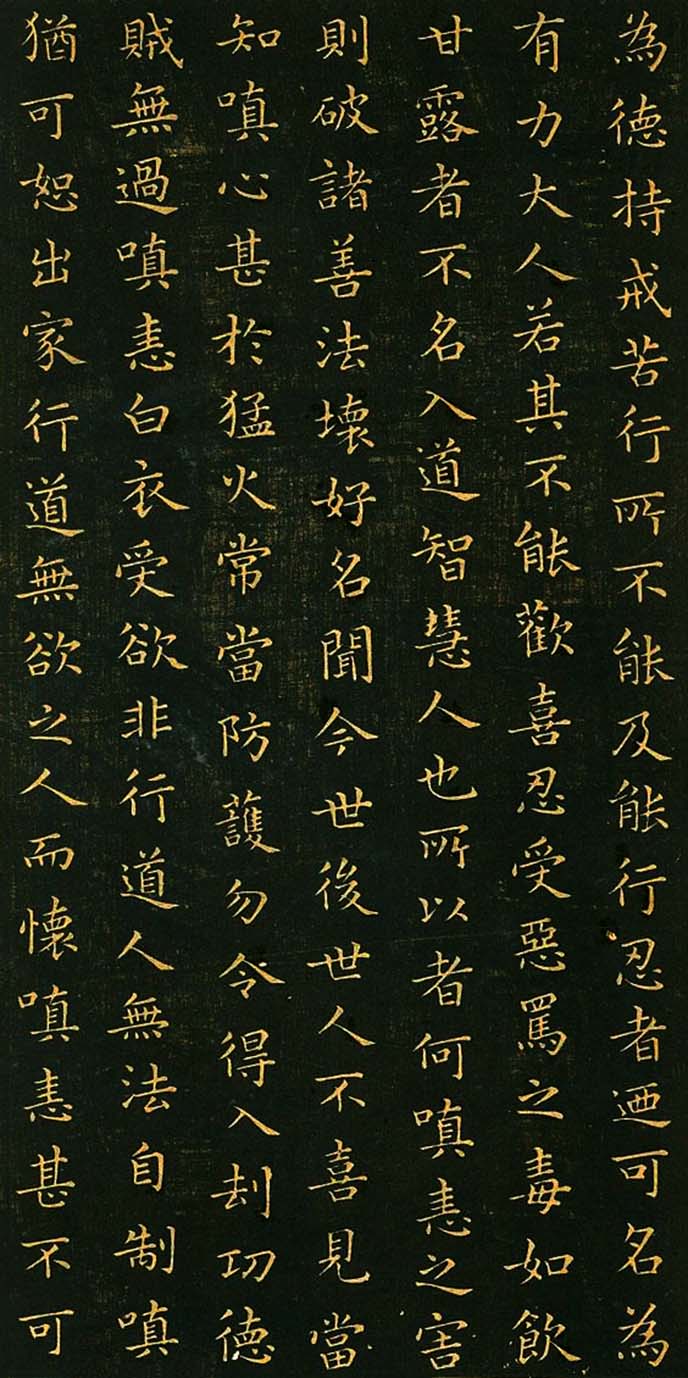 為德持戒苦行所不能及能行忍者迺可名為
有力大人若其不能歡喜忍受惡罵之毒如飲
甘露者不名入道智慧人也所以者何嗔恚之害
則破諸善法壞好名聞今世後世人不喜見當
知嗔心甚於猛火常當防護勿令得入刦功德
賊無過嗔恚白衣受欲非行道人無法自制嗔
猶可恕出家行道無欲之人而懷嗔恚甚不可